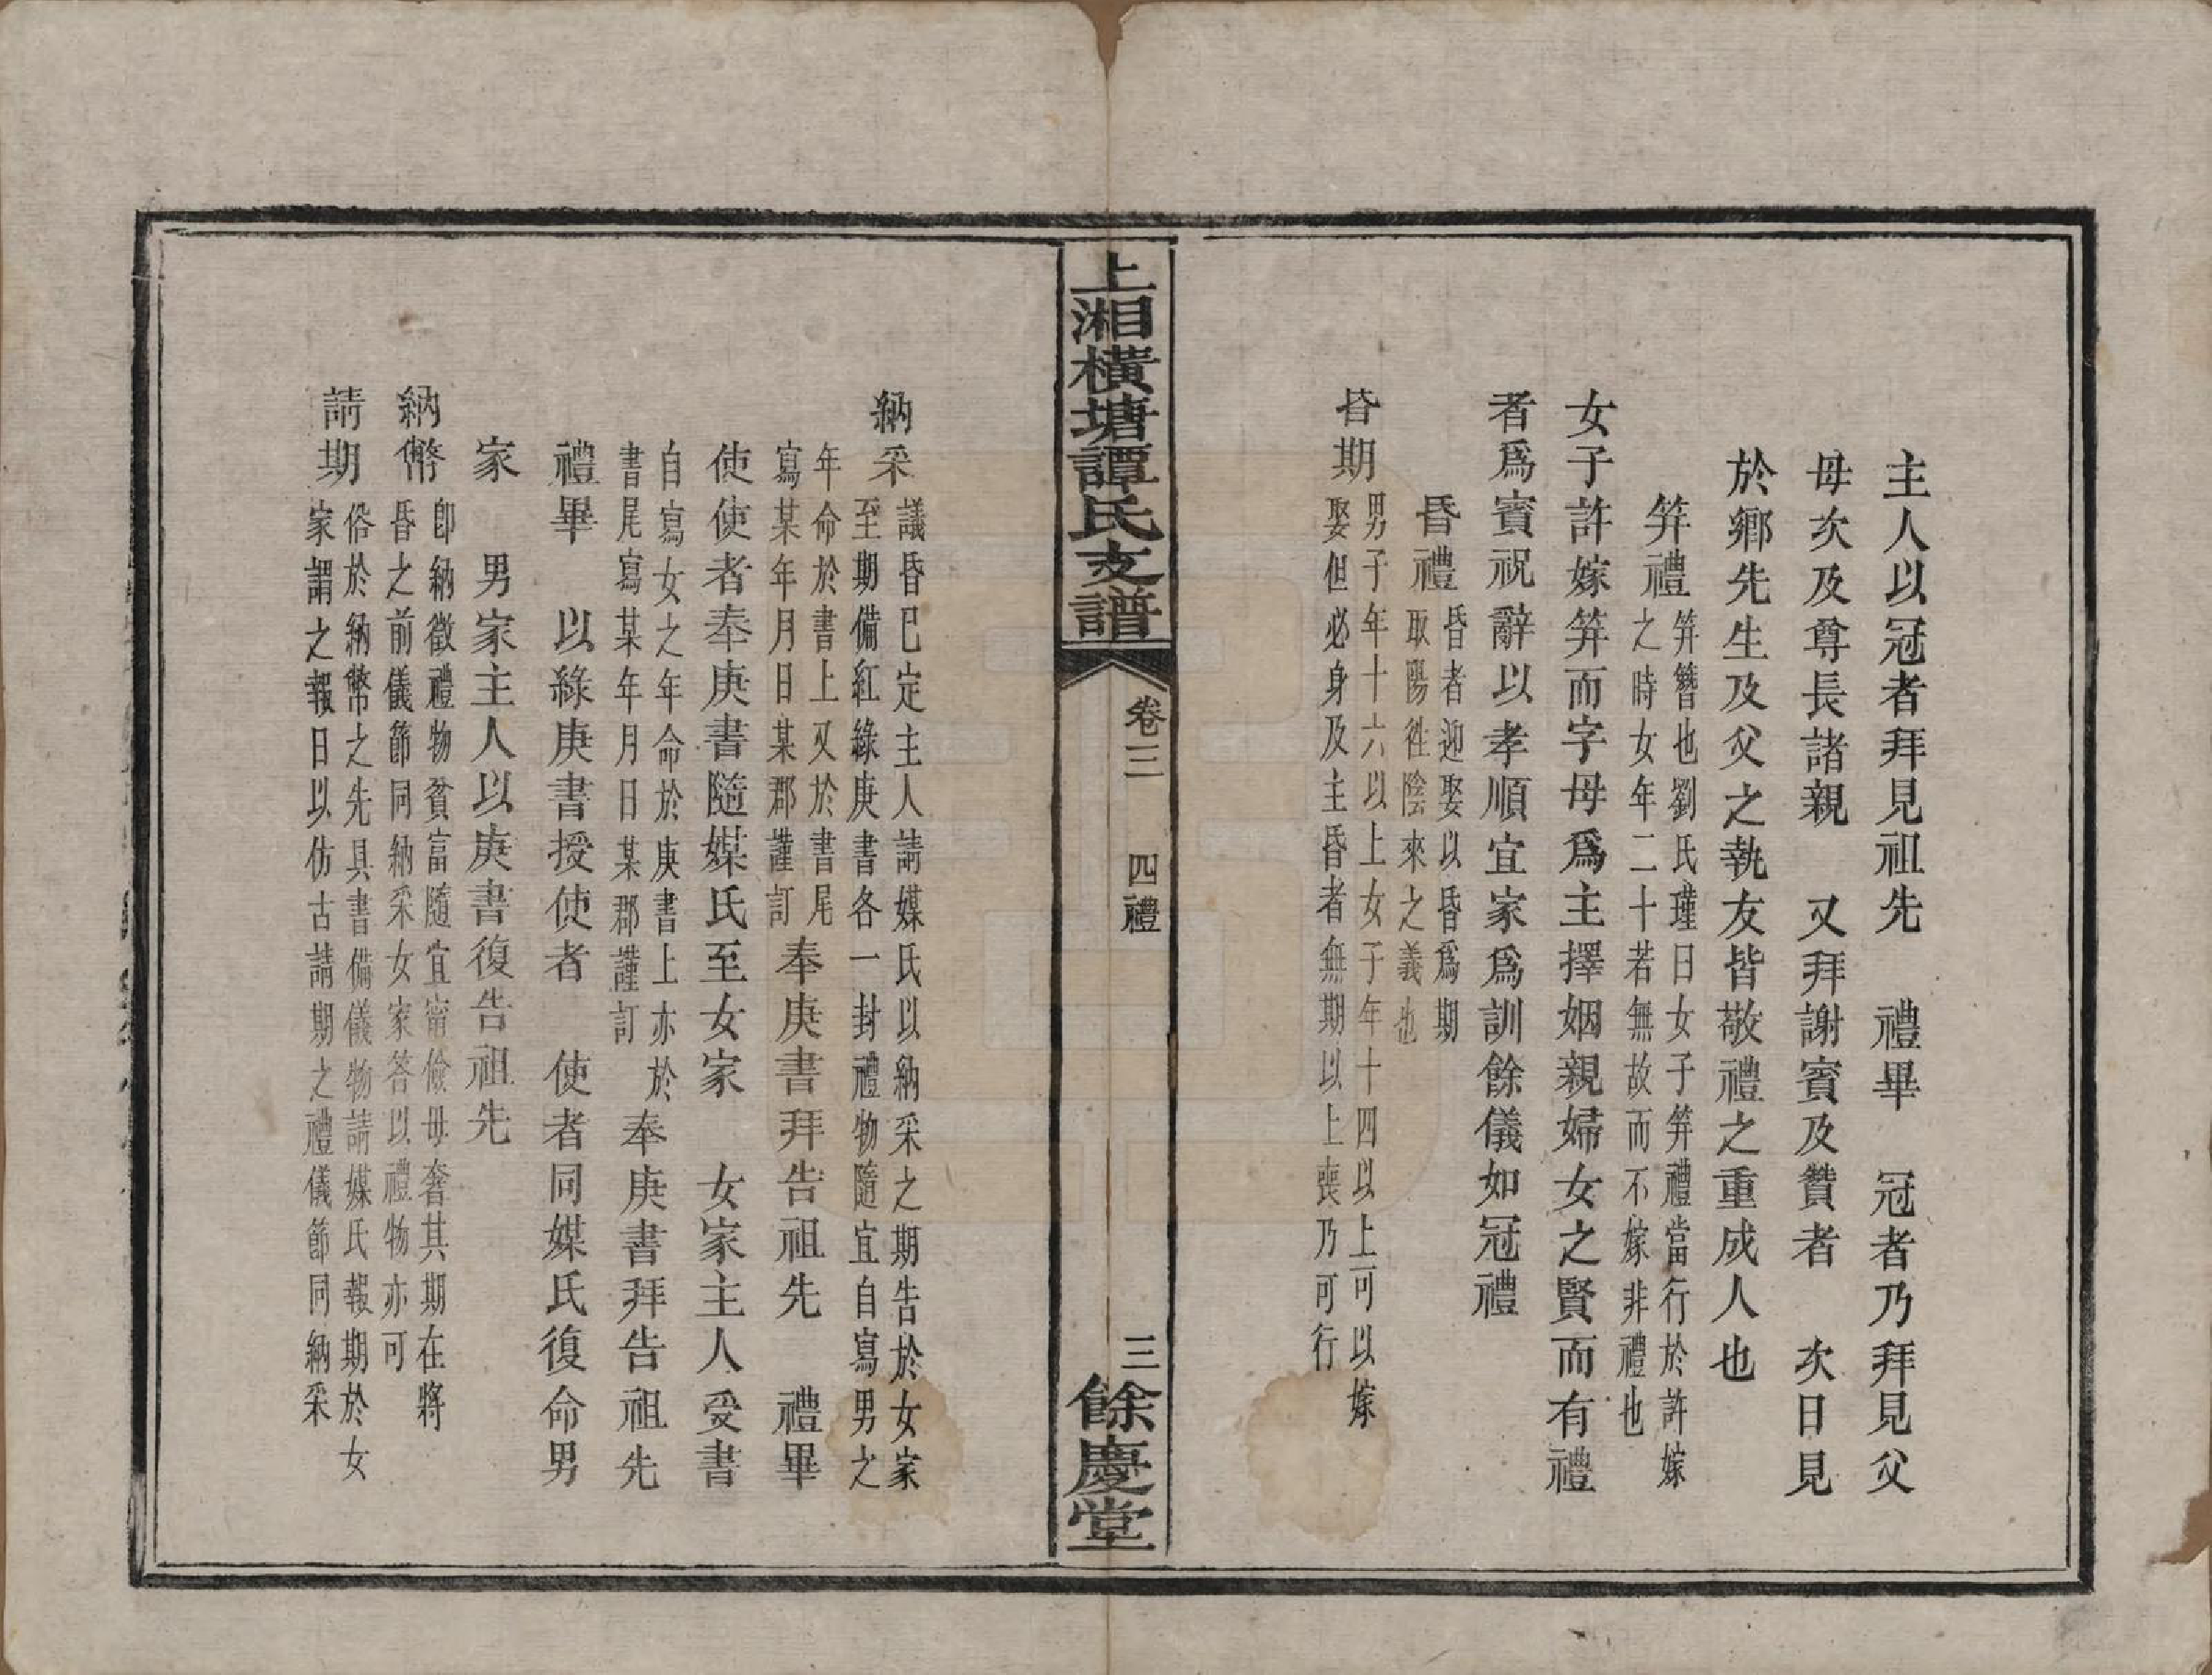 主人以冠者拜見祖先　禮畢　冠者乃拜見父
母次及尊長諸親　又拜謝賓及贊者　次日見
於鄉先生及父之執友皆敬禮之重成人也
笄禮
笄簪也劉氏瑾曰女子笄禮當行於許嫁
之時女年二十若無故而不嫁非禮也
女子許嫁笄而字母爲主擇姻親婦女之賢而有禮
者爲賓祝辭以孝順宜家爲訓餘儀如冠禮
昏禮
昏者迎娶以昏爲期
取陽往陰來之義也
昏期
男子年十六以上女子年十四以上可以嫁
娶但必身及主昏者無期以上喪乃可行
上湘橫塘譚氏支譜
卷三
四禮
三
餘慶堂
納采
議昏已定主人請媒氏以納采之期告於女家
至期備紅綠庚書各一封禮物隨宜自寫男之
年命於書上又於書尾
寫某年月日某郡謹訂
奉庚書拜告祖先　禮畢
使使者奉庚書隨媒氏至女家　女家主人受書
自寫女之年命於庚書上亦於
書尾寫某年月日某郡謹訂
奉庚書拜告祖先
禮畢　以綠庚書授使者　使者同媒氏復命男
家　男家主人以庚書復告祖先
納幣
卽納徵禮物貧富隨宜甯儉毋奢其期在將
昏之前儀節同納采女家荅以禮物亦可
請期
俗於納幣之先具書備儀物請媒氏報期於女
家謂之報日以仿古請期之禮儀節同納采